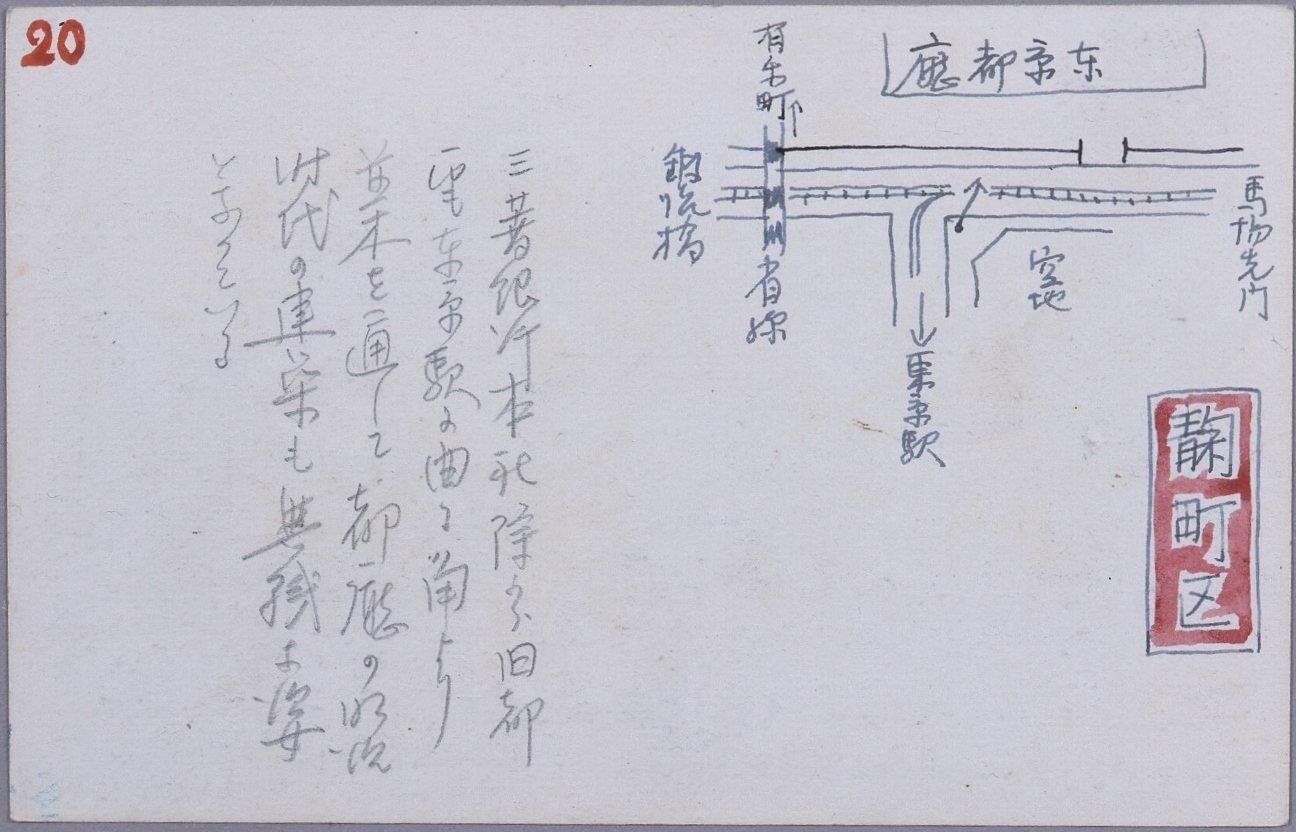 20
东京都廳
有楽町
馬場先門
鍛冶橋
省線
空地
東京駅
麹町区
三菱銀行本社際から旧都
東京駅に曲る角より
並木を通して都廳の明治
時代の建築も無残な姿
となっている